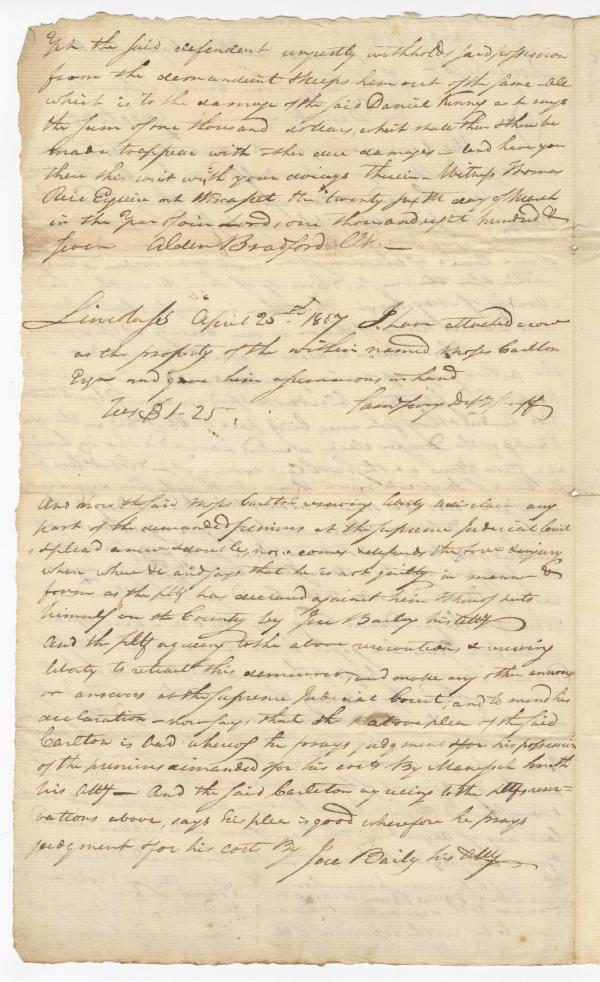 Yet the said defendent unjustly withholds said possession
from the demandent & keeps him out of the same – all
which is to the damage of the said Daniel Kenny as he says
the sum of one thousand dollars, which shall then & there be
made to appear with other due damages – and have you
there this writ with your doings therein – Witness Thomas
Rice Esquire at Wiscasset this twenty sixth day of March
in the Year of our Lord, one thousand eight hundred &
seven Alden Bradford Clk. –
Lincoln ss April 25th 1807 I have attached a cow
as the property of the within named Moses Carlton
Esqr and gave him a summons in hand
Fees $1-25 Dept Sheriff
And now the said Moses Carlton, reserving liberty to disclaim any
part of the demanded premises at the supreme Judicial Court
& plead anew & double, now comes & defends the force & injury
when where &c and says that he is not guilty in manner &
form as the plff has declared against him & thereof puts
himself on the Country by Jere Baily his Atty
And the plff agreeing to the above reservations, & reserving
liberty to retract this demurrer, and make any other
or answers at the Supreme Judicial Court, and to mend his
declaration – now says that the above plea of the said
Carlton is bad wherefore he prays judgment & for his possession
of the premises demanded & for his costs By Manasseh Smith
his Atty – And the said Carleton agreeing to the plffs reser-
vations above, says his plea is good wherefore he prays
judgment & for his costs By Jere Baily his Atty